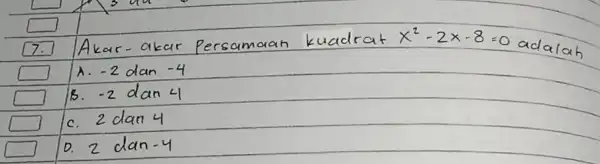 7. Akar-akar Persamaan kuadrat x² - 2x - 8 = 0 adalah
A. -2 dan -4
B. -2 dan 4
C. 2 dan 4
D. 2 dan -4